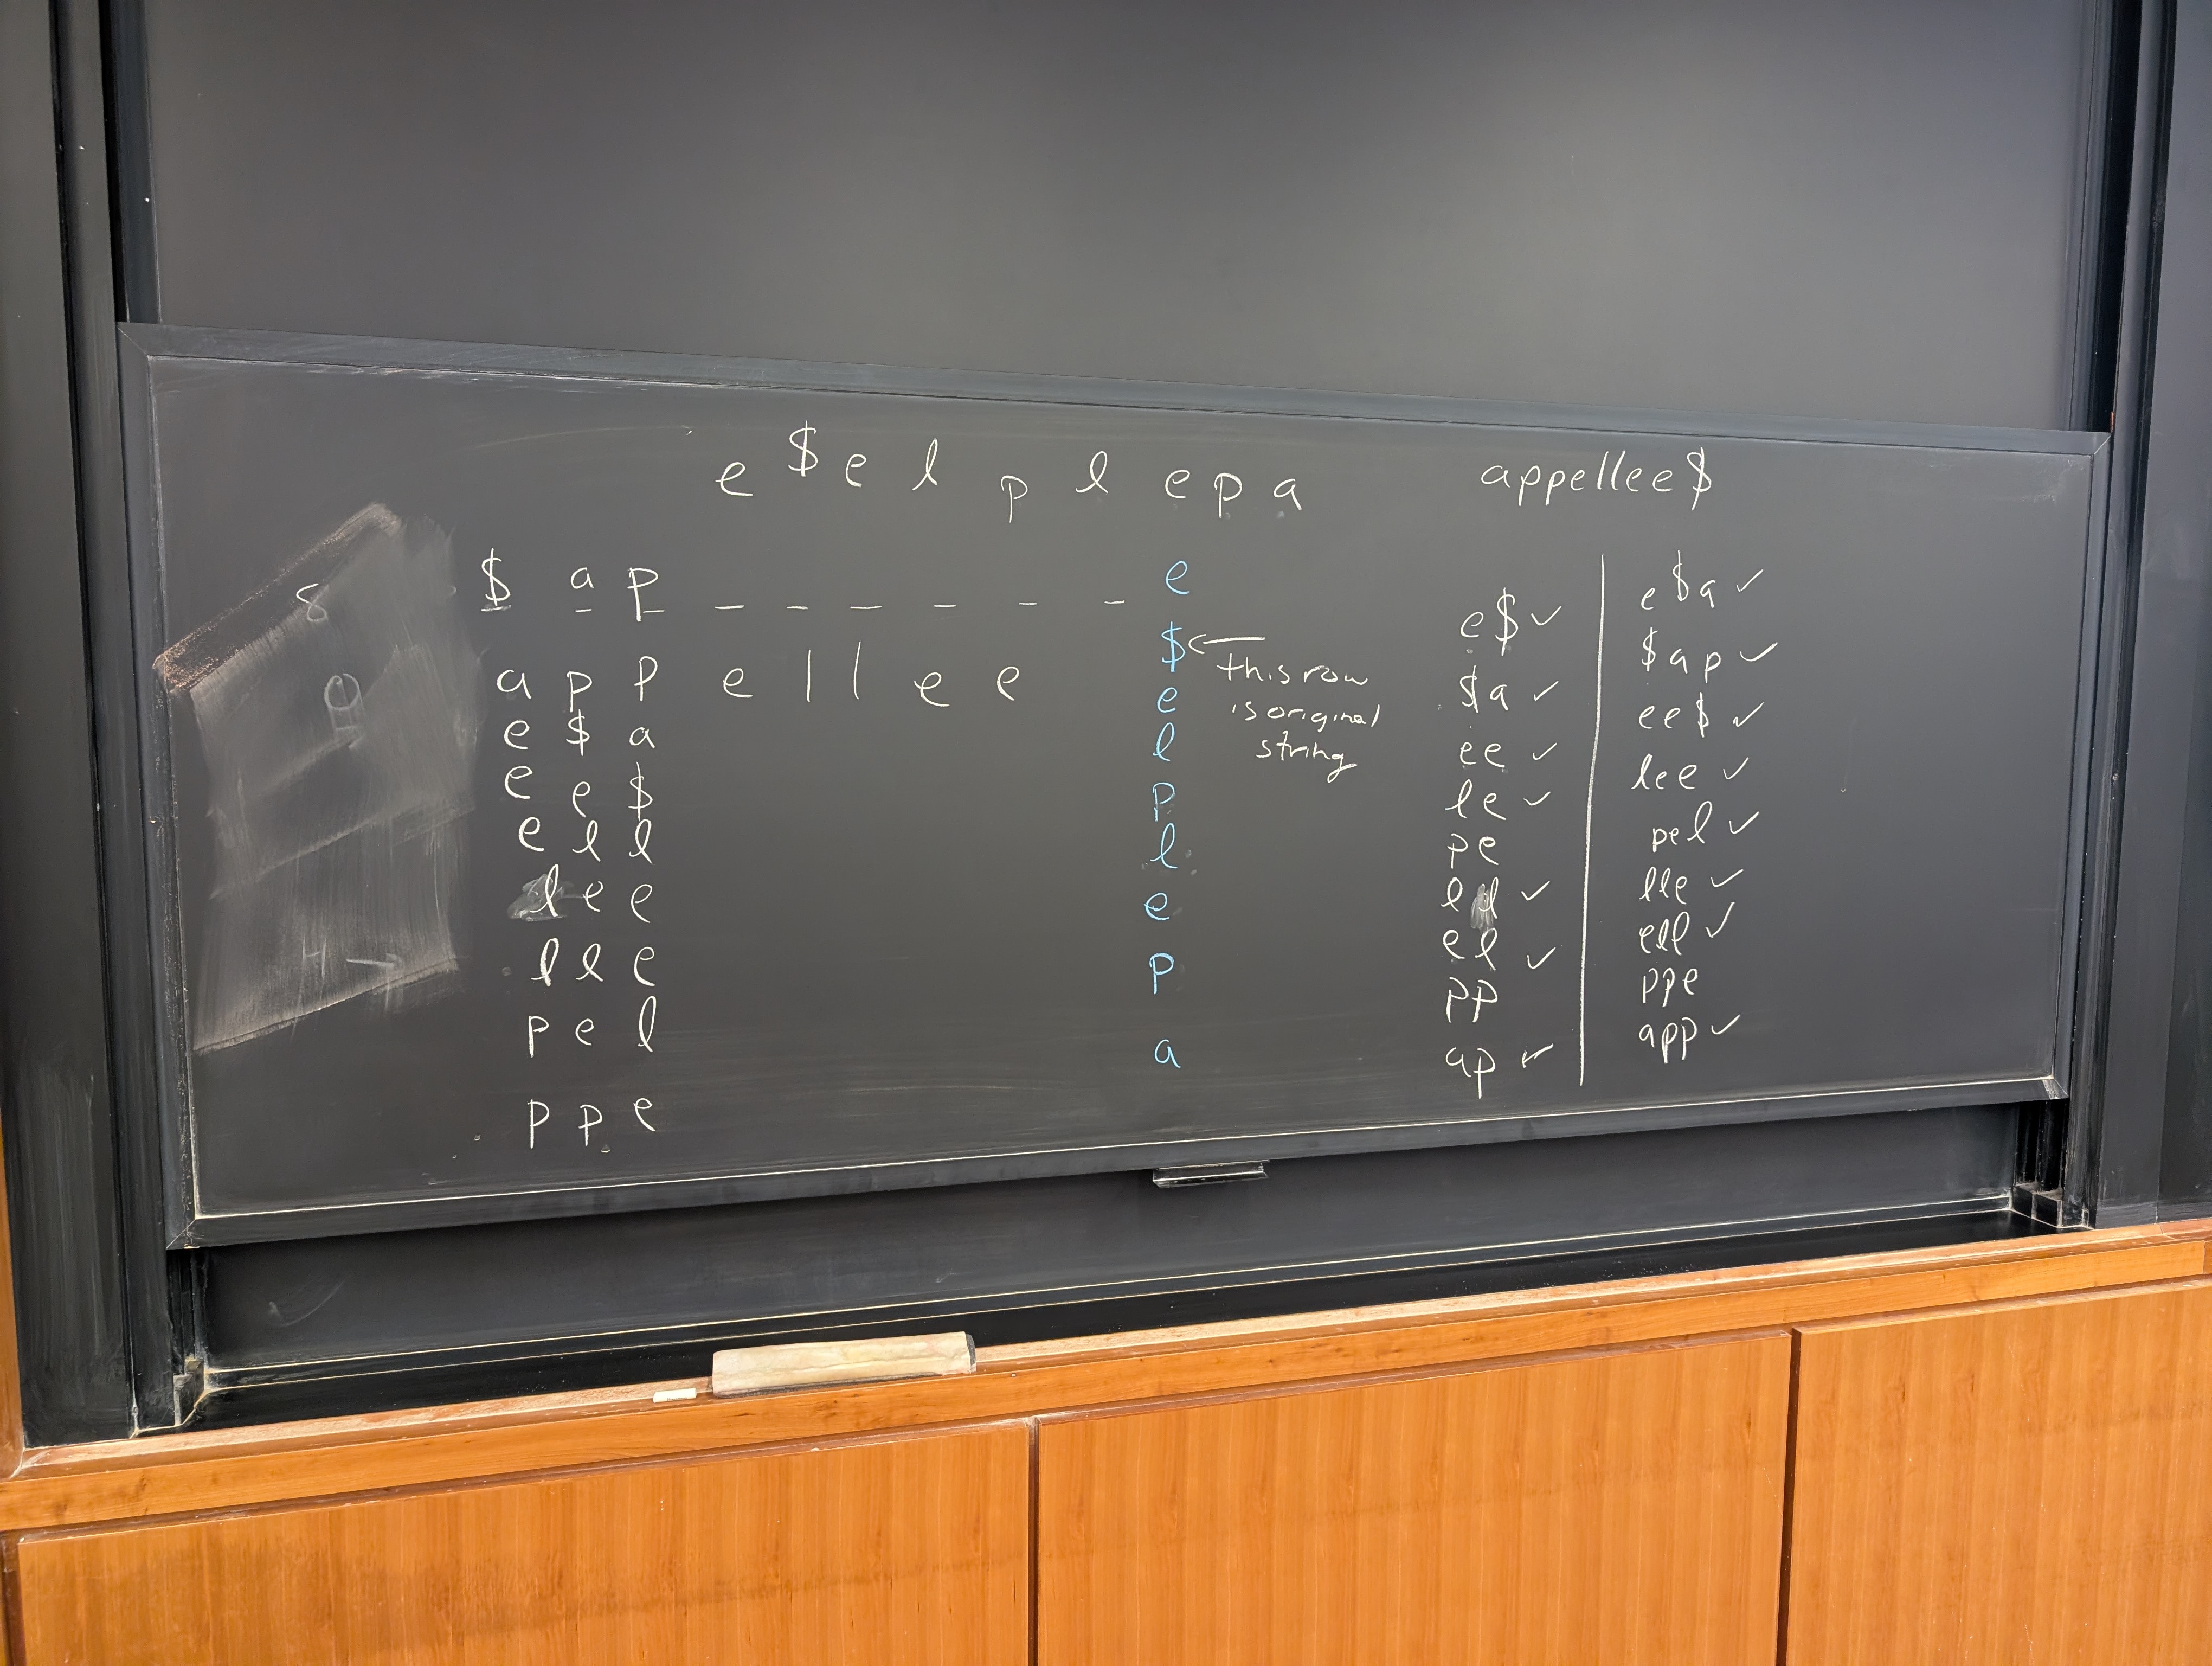 e $ e l p l e p a
appellee$
$ a p _ _ _ _ _ _ e
a p p e l l e e $
this row
is original
string
e $ a e
e e $ l
e l l p
l e e l
l l e e
p e l p
p p e a
e$ ✓
$a ✓
ee ✓
le ✓
pe
ll ✓
el ✓
pp
ap ✓
e$a ✓
$ap ✓
ee$ ✓
lee ✓
pel ✓
lle ✓
ell ✓
ppe
app ✓